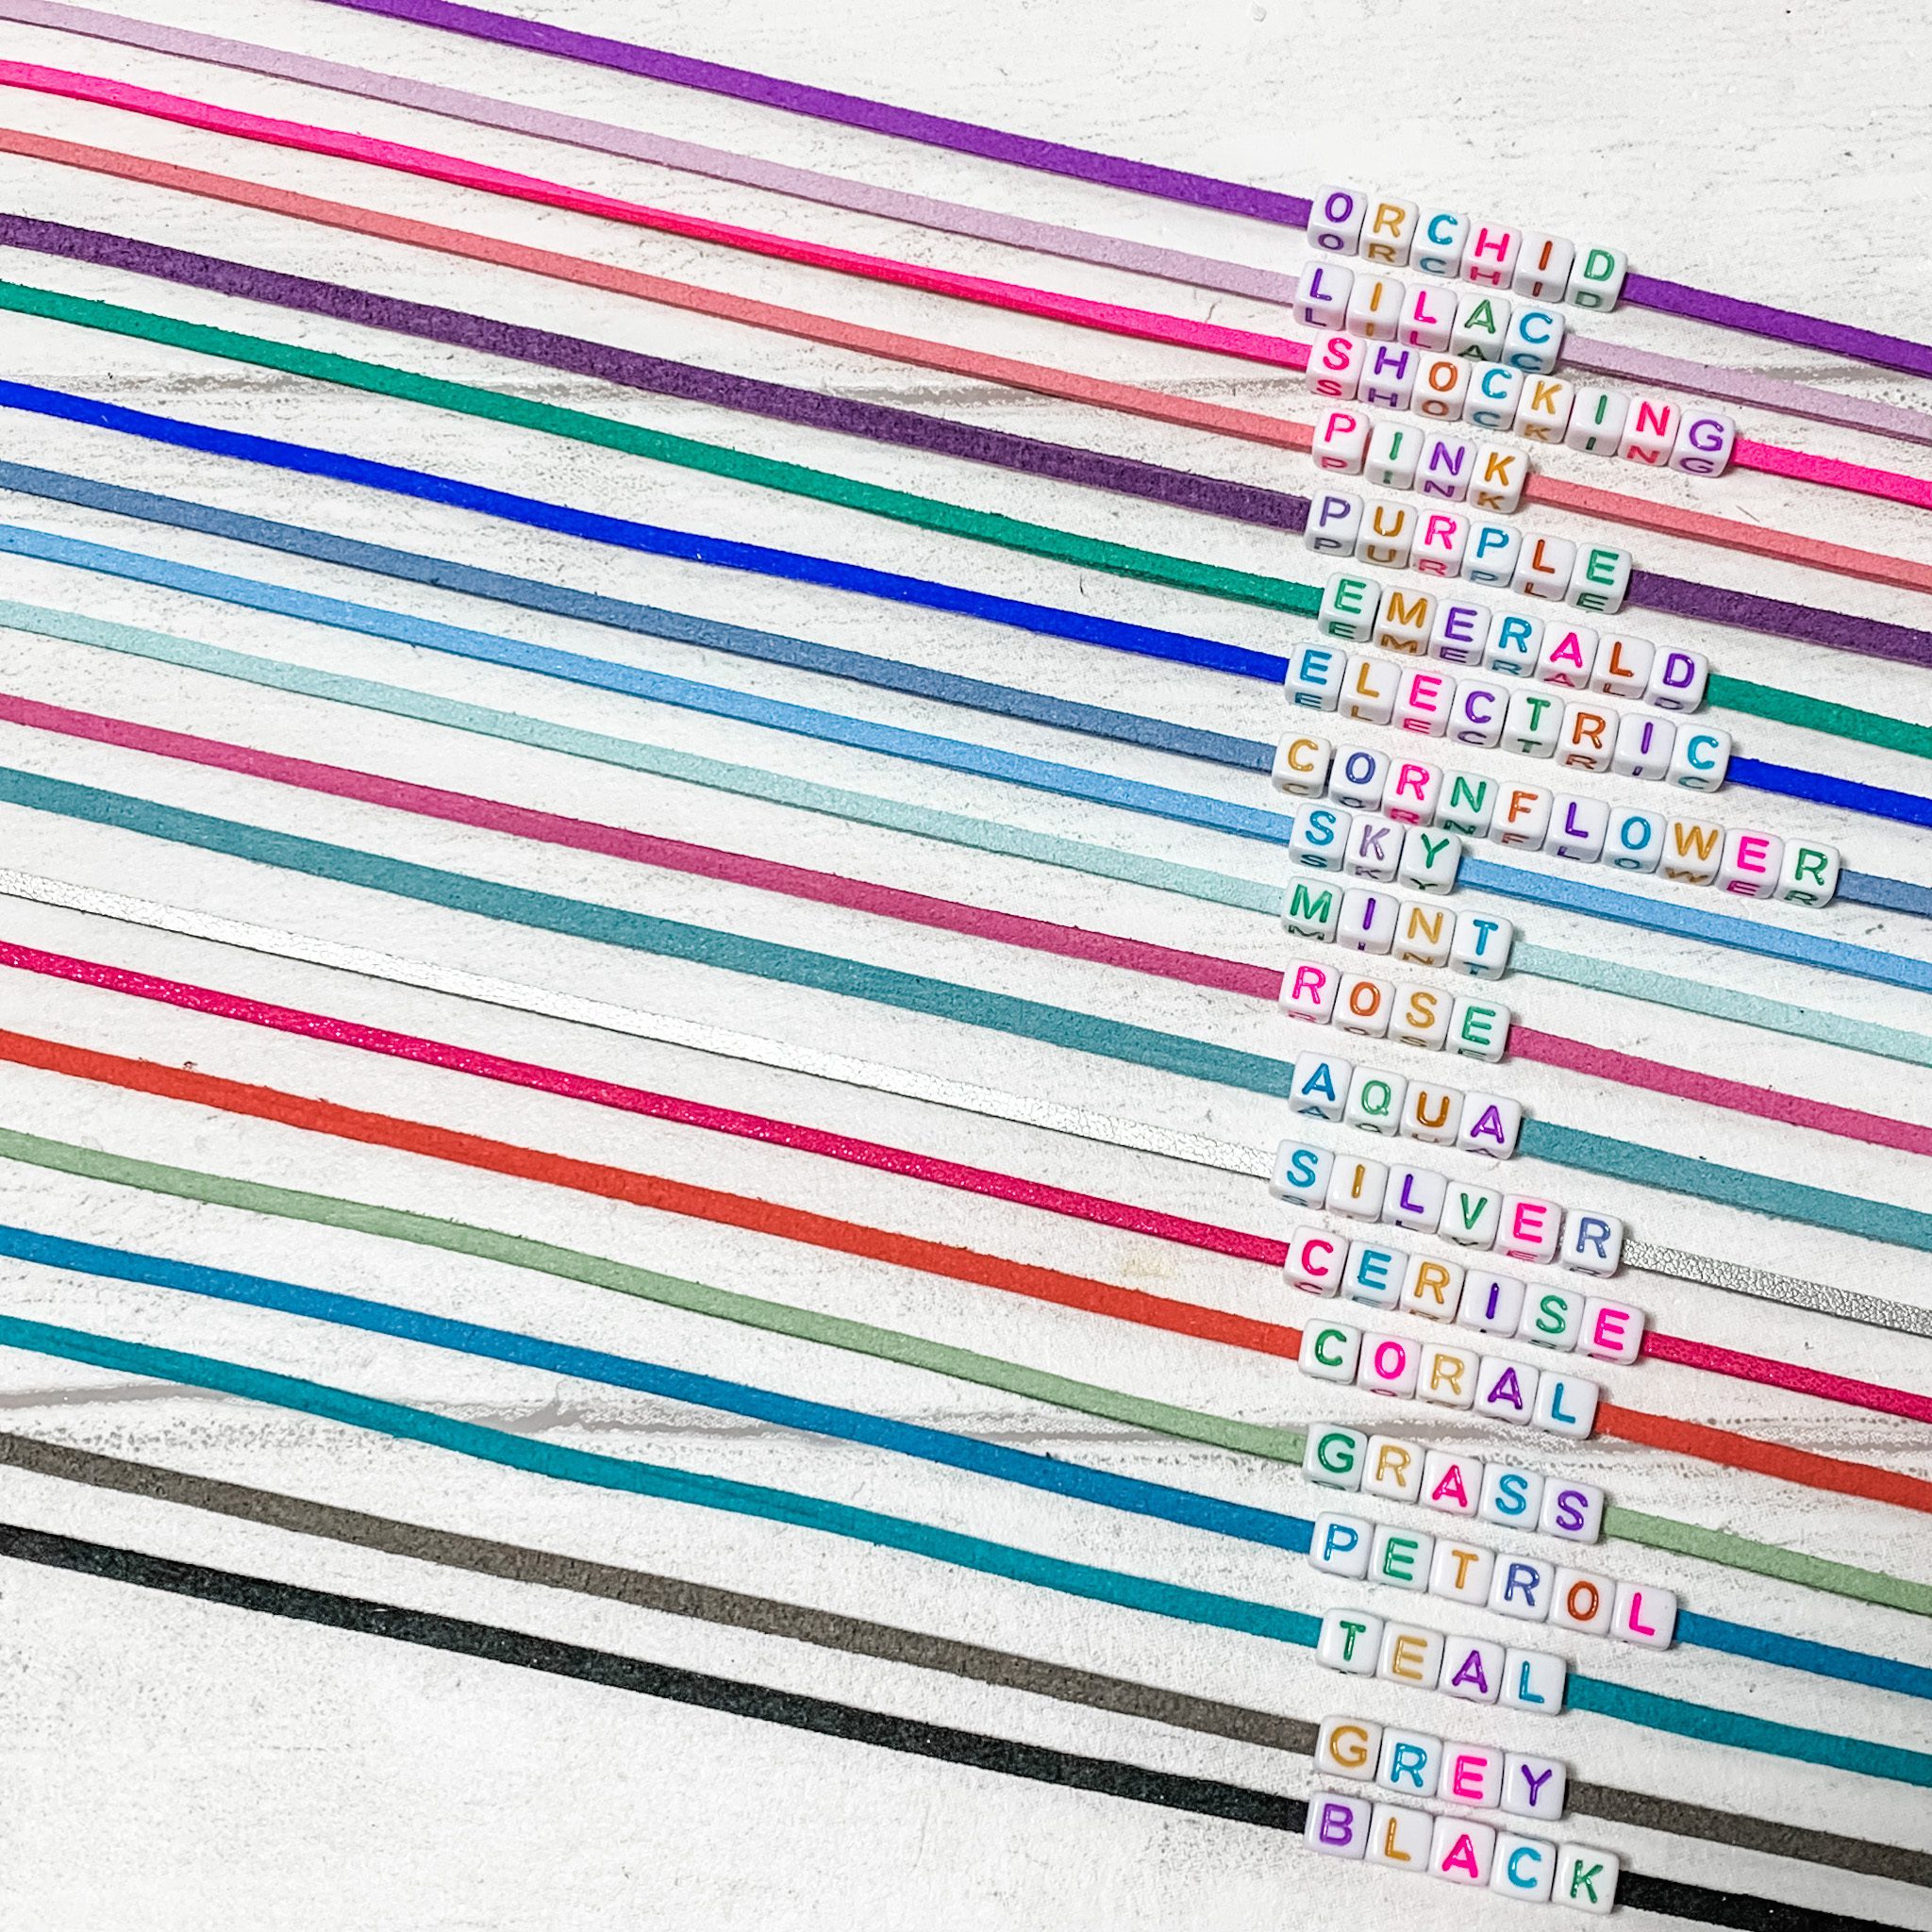 ORCHID
LILAC
SHOCKING
PINK
PURPLE
EMERALD
ELECTRIC
CORNFLOWER
SKY
MINT
ROSE
AQUA
SILVER
CERISE
CORAL
GRASS
PETROL
TEAL
GREY
BLACK